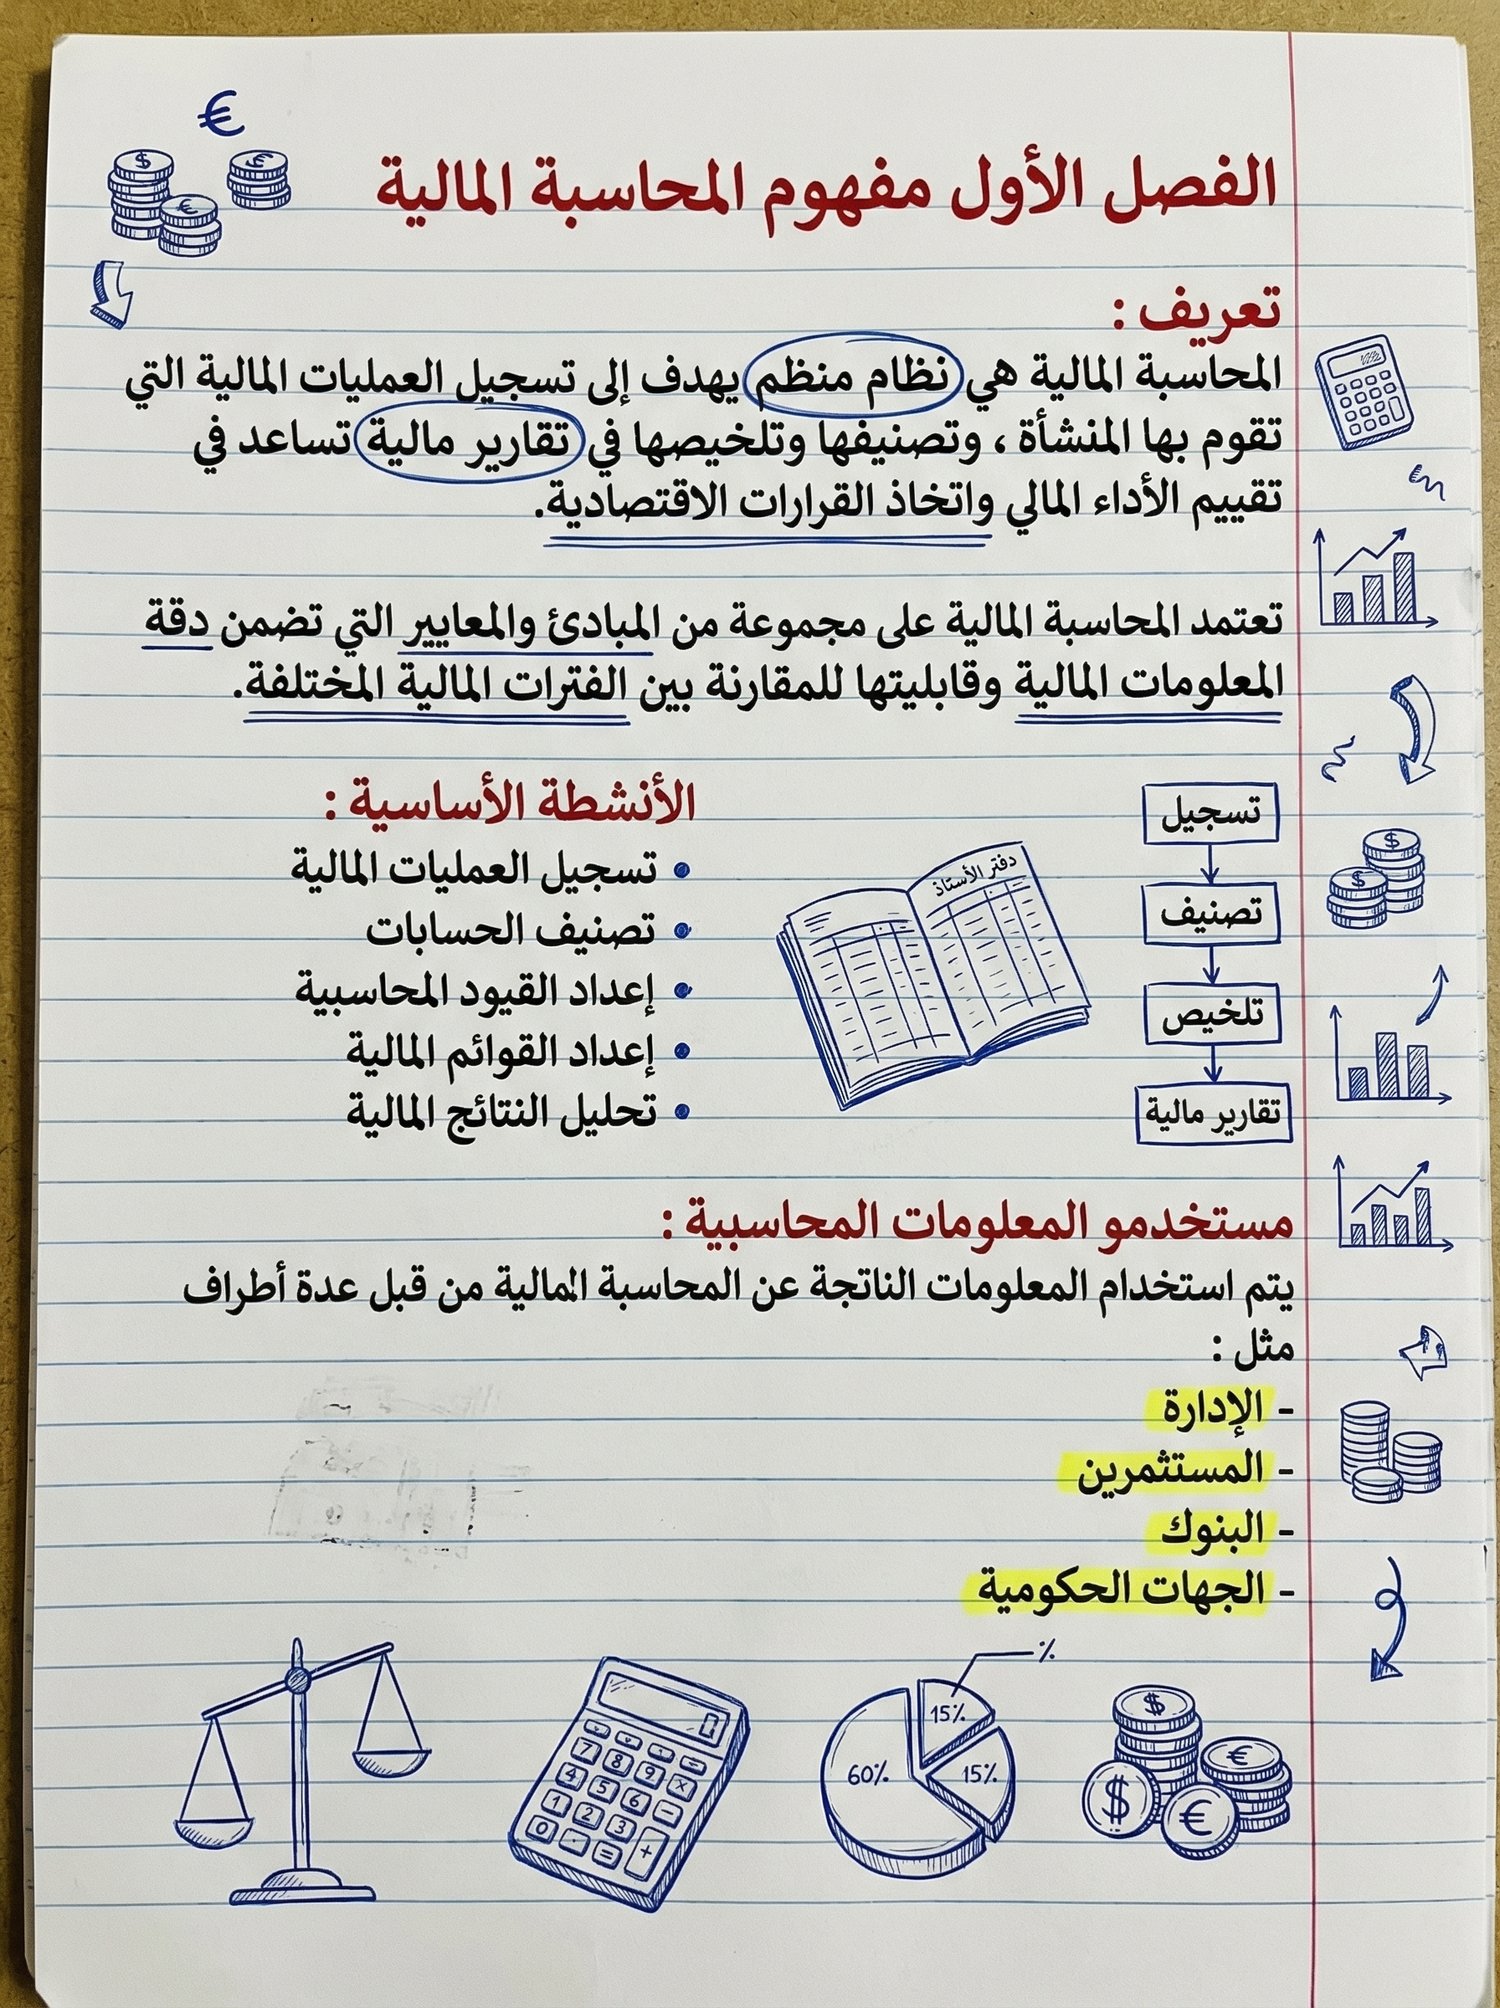 الفصل الأول مفهوم المحاسبة المالية
تعريف :
المحاسبة المالية هي نظام منظم يهدف إلى تسجيل العمليات المالية التي
تقوم بها المنشأة ، وتصنيفها وتلخيصها في تقارير مالية تساعد في
تقييم الأداء المالي واتخاذ القرارات الاقتصادية.
تعتمد المحاسبة المالية على مجموعة من المبادئ والمعايير التي تضمن دقة
المعلومات المالية وقابليتها للمقارنة بين الفترات المالية المختلفة.
تسجيل
تصنيف
تلخيص
تقارير مالية
دفتر الأستاذ
الأنشطة الأساسية :
• تسجيل العمليات المالية
• تصنيف الحسابات
• إعداد القيود المحاسبية
• إعداد القوائم المالية
• تحليل النتائج المالية
مستخدمو المعلومات المحاسبية :
يتم استخدام المعلومات الناتجة عن المحاسبة المالية من قبل عدة أطراف
مثل :
- الإدارة
- المستثمرين
- البنوك
- الجهات الحكومية
%
15%
60%
15%
$
$
€
€
7 8 9 ×
4 5 6 -
1 2 3 +
0 . =
€
$
€
€
$
$